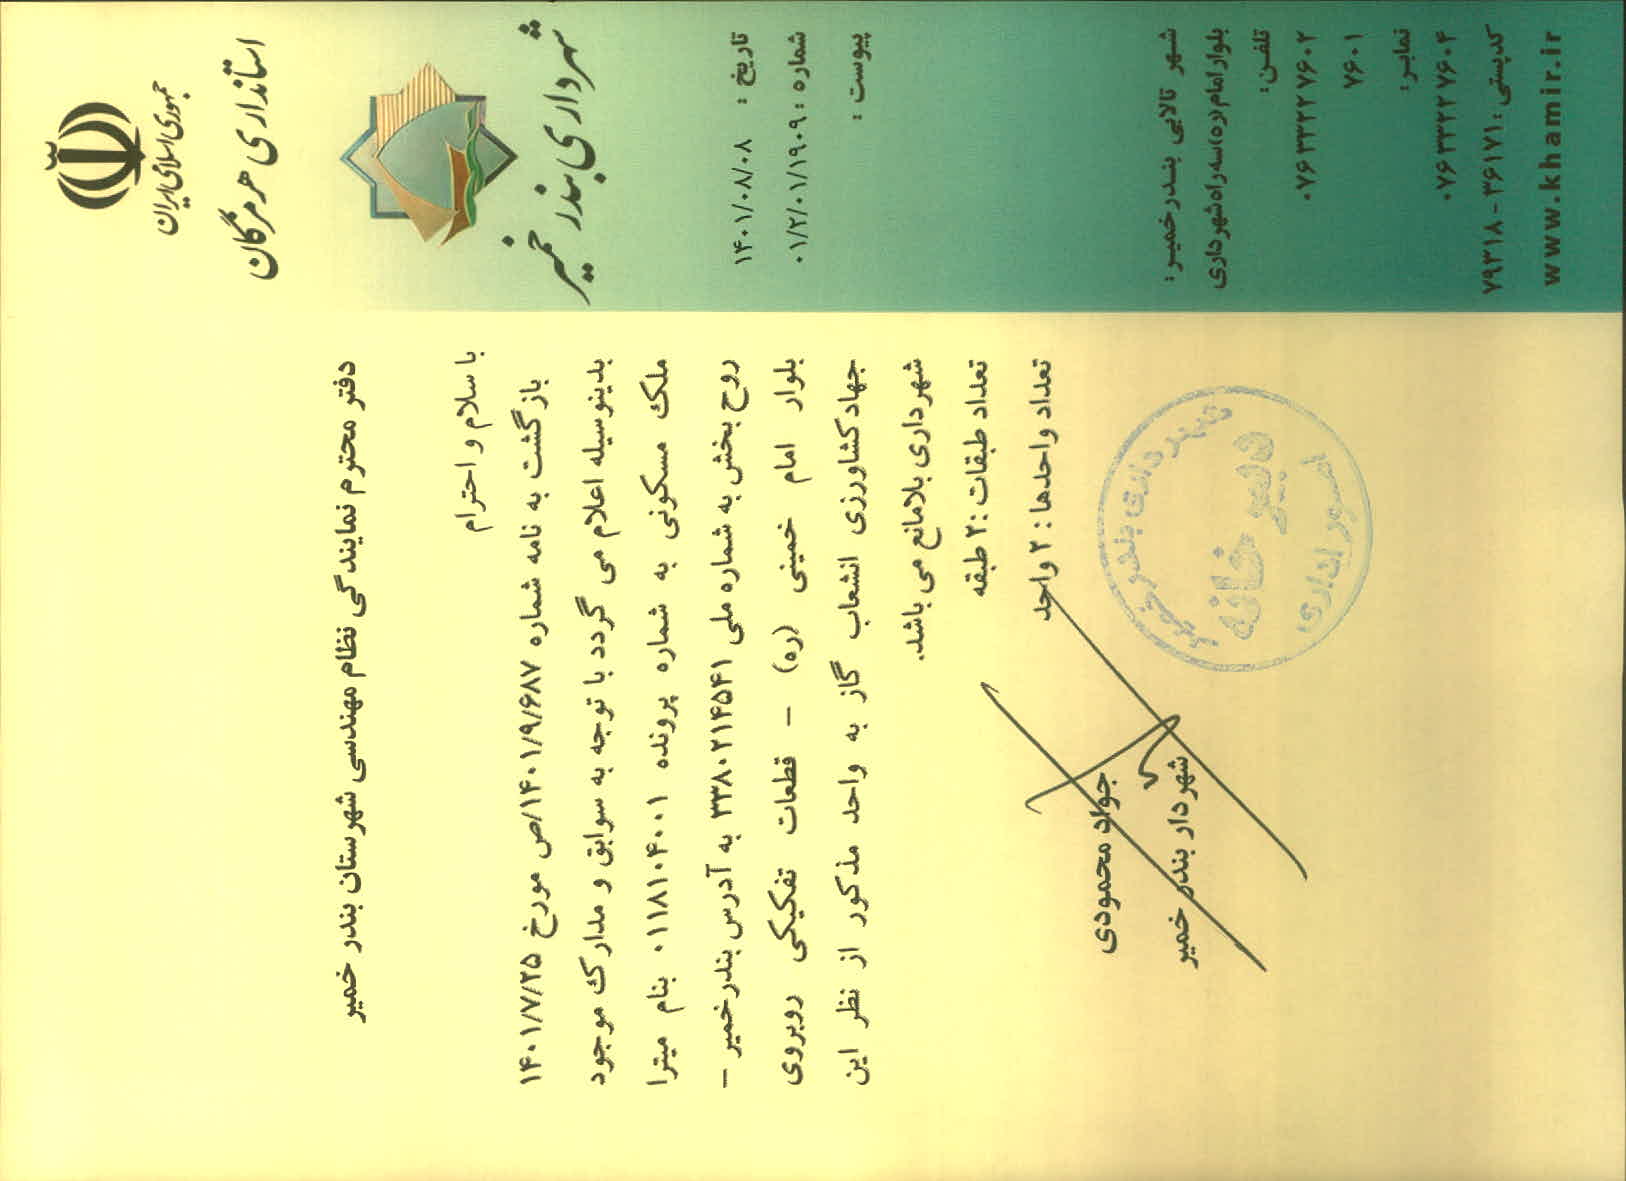 جمهوری اسلامی ایران
استانداری هرمزگان
شهرداری بندر خمیر
تاریخ : ۱۴۰۱/۰۸/۰۸
شماره : ۰۱/۲/۰۱/۱۹۰۹
پیوست :
دفتر محترم نمایندگی نظام مهندسی شهرستان بندر خمیر
با سلام و احترام
بازگشت به نامه شماره ۱۴۰۱/۹/۶۸۷/ص مورخ ۱۴۰۱/۷/۲۵
بدینوسیله اعلام می گردد با توجه به سوابق و مدارک موجود
ملک مسکونی به شماره پرونده ۰۱۱۸۱۰۴۰۰۱ بنام میترا
روح بخش به شماره ملی ۳۳۸۰۲۱۴۵۴۱ به آدرس بندرخمیر –
بلوار امام خمینی (ره) – قطعات تفکیکی روبروی
جهادکشاورزی انشعاب گاز به واحد مذکور از نظر این
شهرداری بلامانع می باشد.
تعداد طبقات :۲ طبقه
تعداد واحدها : ۲ واحد
جواد محمودی
شهردار بندر خمیر
شهرداری بندر خمیر
دبیرخانه
امور اداری
شهر تالابی بندرخمیر:
بلوار امام (ره) سه راه شهرداری
تلفن:
۰۷۶۳۳۲۲۷۶۰۲
۷۶۰۱
نمابر:
۰۷۶۳۳۲۲۷۶۰۴
کدپستی : ۳۶۱۷۱-۷۹۳۱۸
www.khamir.ir